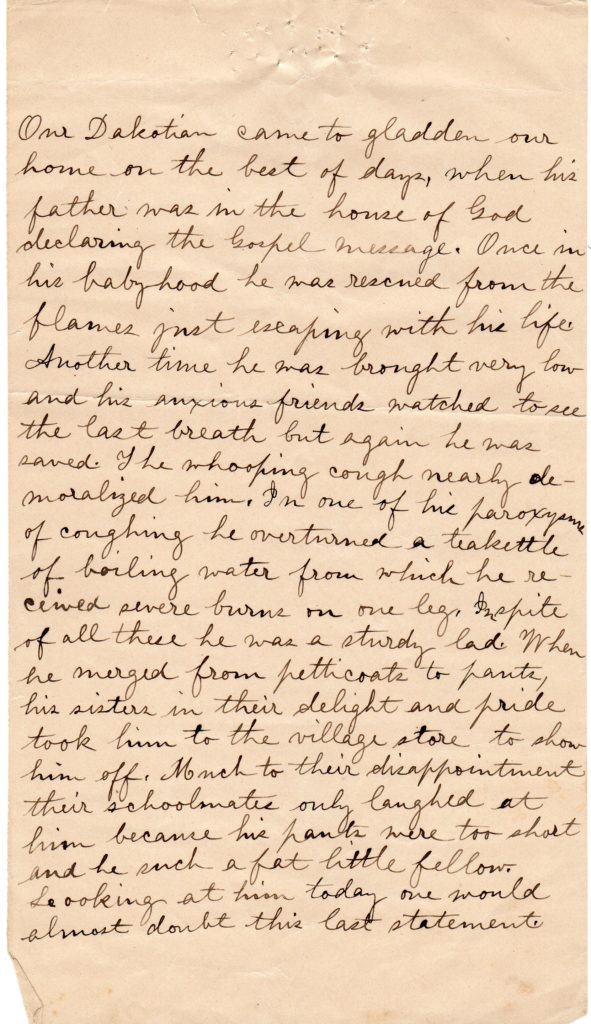 Our Dakotian came to gladden our
home on the best of days, when his
father was in the house of God
declaring the Gospel message. Once in
his babyhood he was rescued from the
flames just escaping with his life.
Another time he was brought very low
and his anxious friends watched to see
the last breath but again he was
saved. The whooping cough nearly de-
moralized him. In one of his paroxysms
of coughing he overturned a teakettle
of boiling water from which he re-
ceived severe burns on one leg. In spite
of all these he was a sturdy lad. When
he merged from petticoats to pants,
his sisters in their delight and pride
took him to the village store to show
him off. Much to their disappointment
their schoolmates only laughed at
him because his pants were too short
and he such a fat little fellow.
Looking at him today one would
almost doubt this last statement.